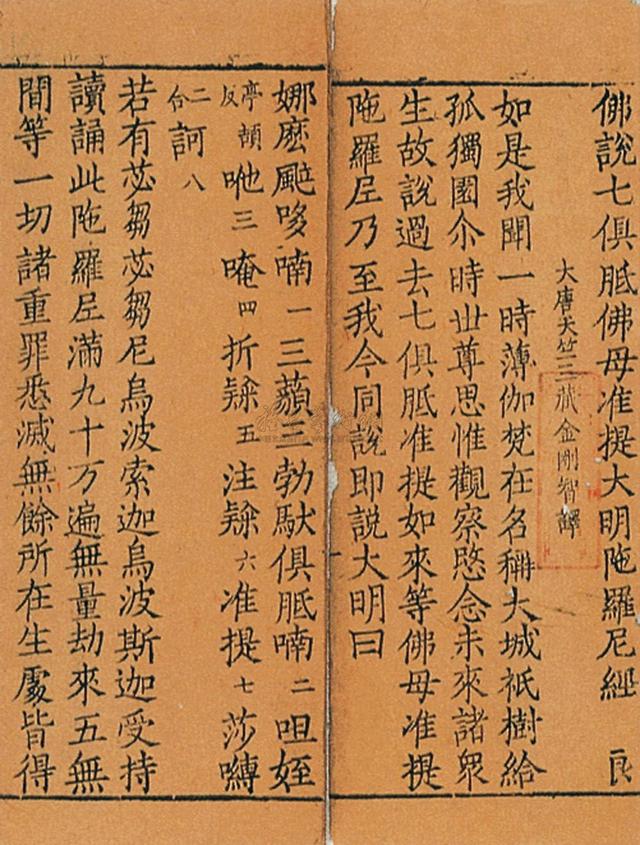 佛說七俱胝佛母准提大明陁羅尼經 良
大唐天竺三藏金剛智譯
如是我聞一時薄伽梵在名稱大城祇樹給
孤獨園尒時世尊思惟觀察愍念未來諸衆
生故說過去七俱胝准提如來等佛母准提
陁羅尼乃至我今同說即說大明曰
娜麽颯哆喃一三藐三勃馱俱胝喃二呾姪
亭頓反咃三唵四折隸五注隸六准提七莎嚩
二合訶八
若有苾芻苾芻尼烏波索迦烏波斯迦受持
讀誦此陁羅尼滿九十万遍無量劫來五無
間等一切諸重罪悉滅無餘所在生處皆得